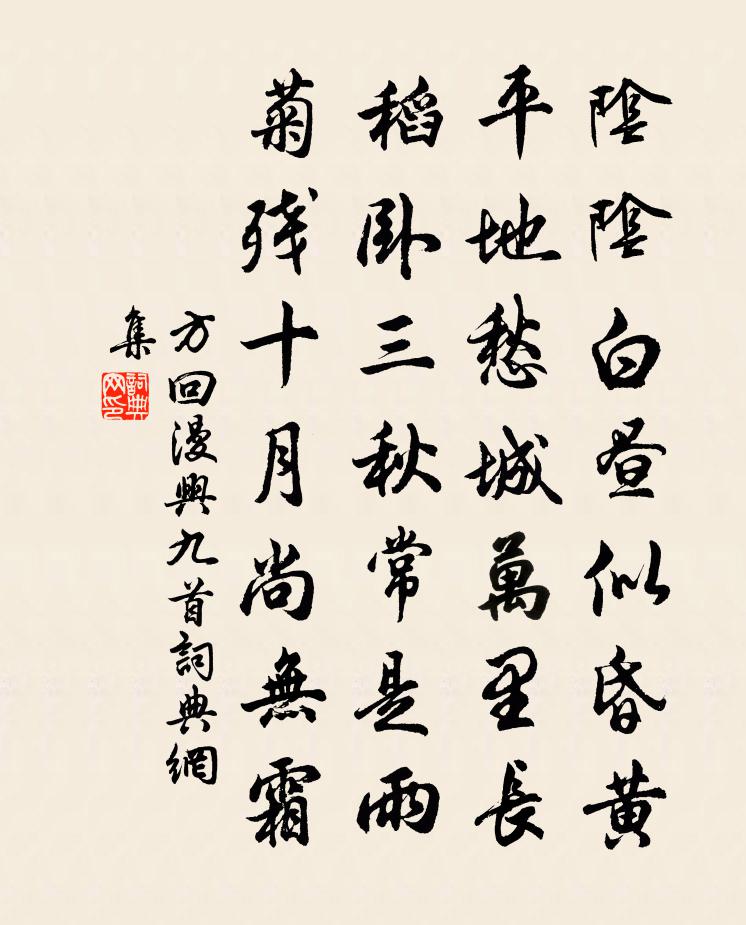 陰陰白晝似昏黃
平地愁城萬里長
稻卧三秋常是雨
菊殘十月尚無霜
方回漫興九首詞典網
集
詞典
网印